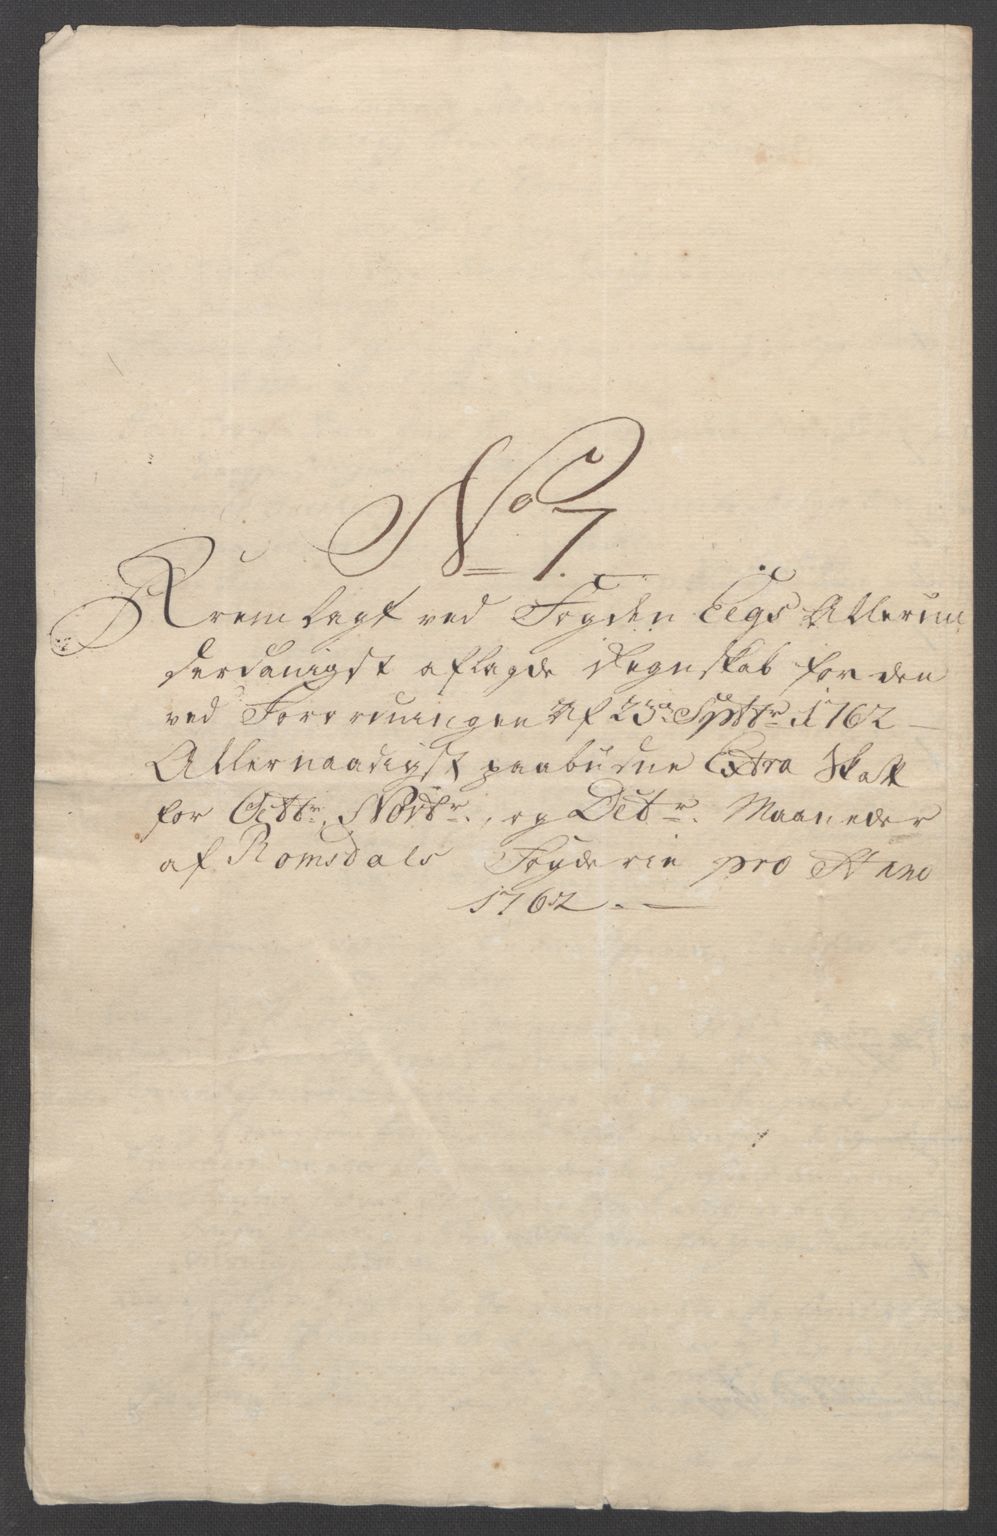 No 7.
Fremlagt ved Fogden Eegs Allerun
derdanigst aflagde Regnskab for den
ved Forordningen af 23de Septbr. 1762
Allernaadigst paabudne Extra Skatt
for Octbr. Novbr., og Decbr. Maaneder
af Romsdals Fogderie pro Anno
1762.